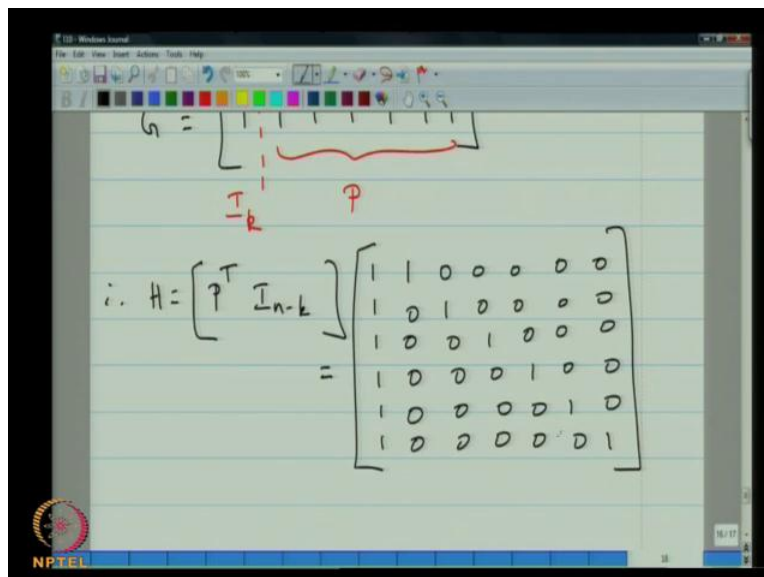 110 - Windows Journal
File Edit View Insert Actions Tools Help
100%
B I
G = [ 1 1 1 1 1 1 1 ]
I_k P
∴ H = [ P^T I_{n-k} ]
= [ 1 1 0 0 0 0 0
1 0 1 0 0 0 0
1 0 0 1 0 0 0
1 0 0 0 1 0 0
1 0 0 0 0 1 0
1 0 0 0 0 0 1 ]
16/17
18
NPTEL